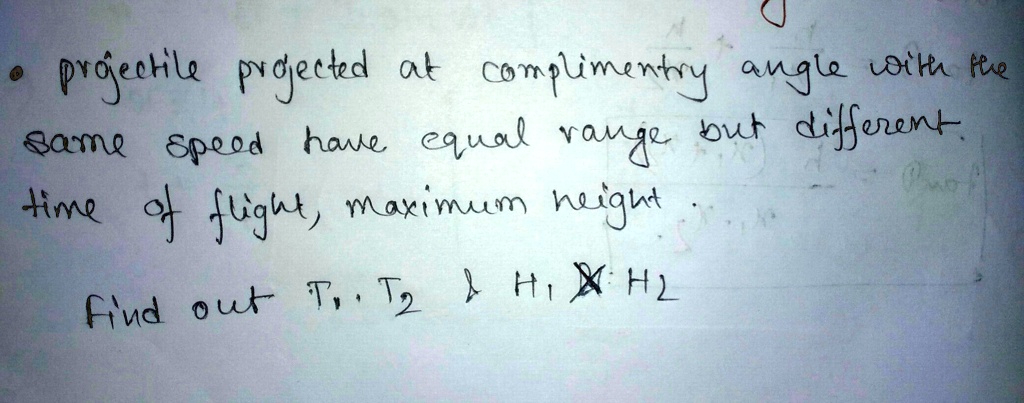 • projectile projected at complimentry angle with the
same speed have equal range but different.
time of flight, maximum height.
Find out T1 . T2 & H1 H2